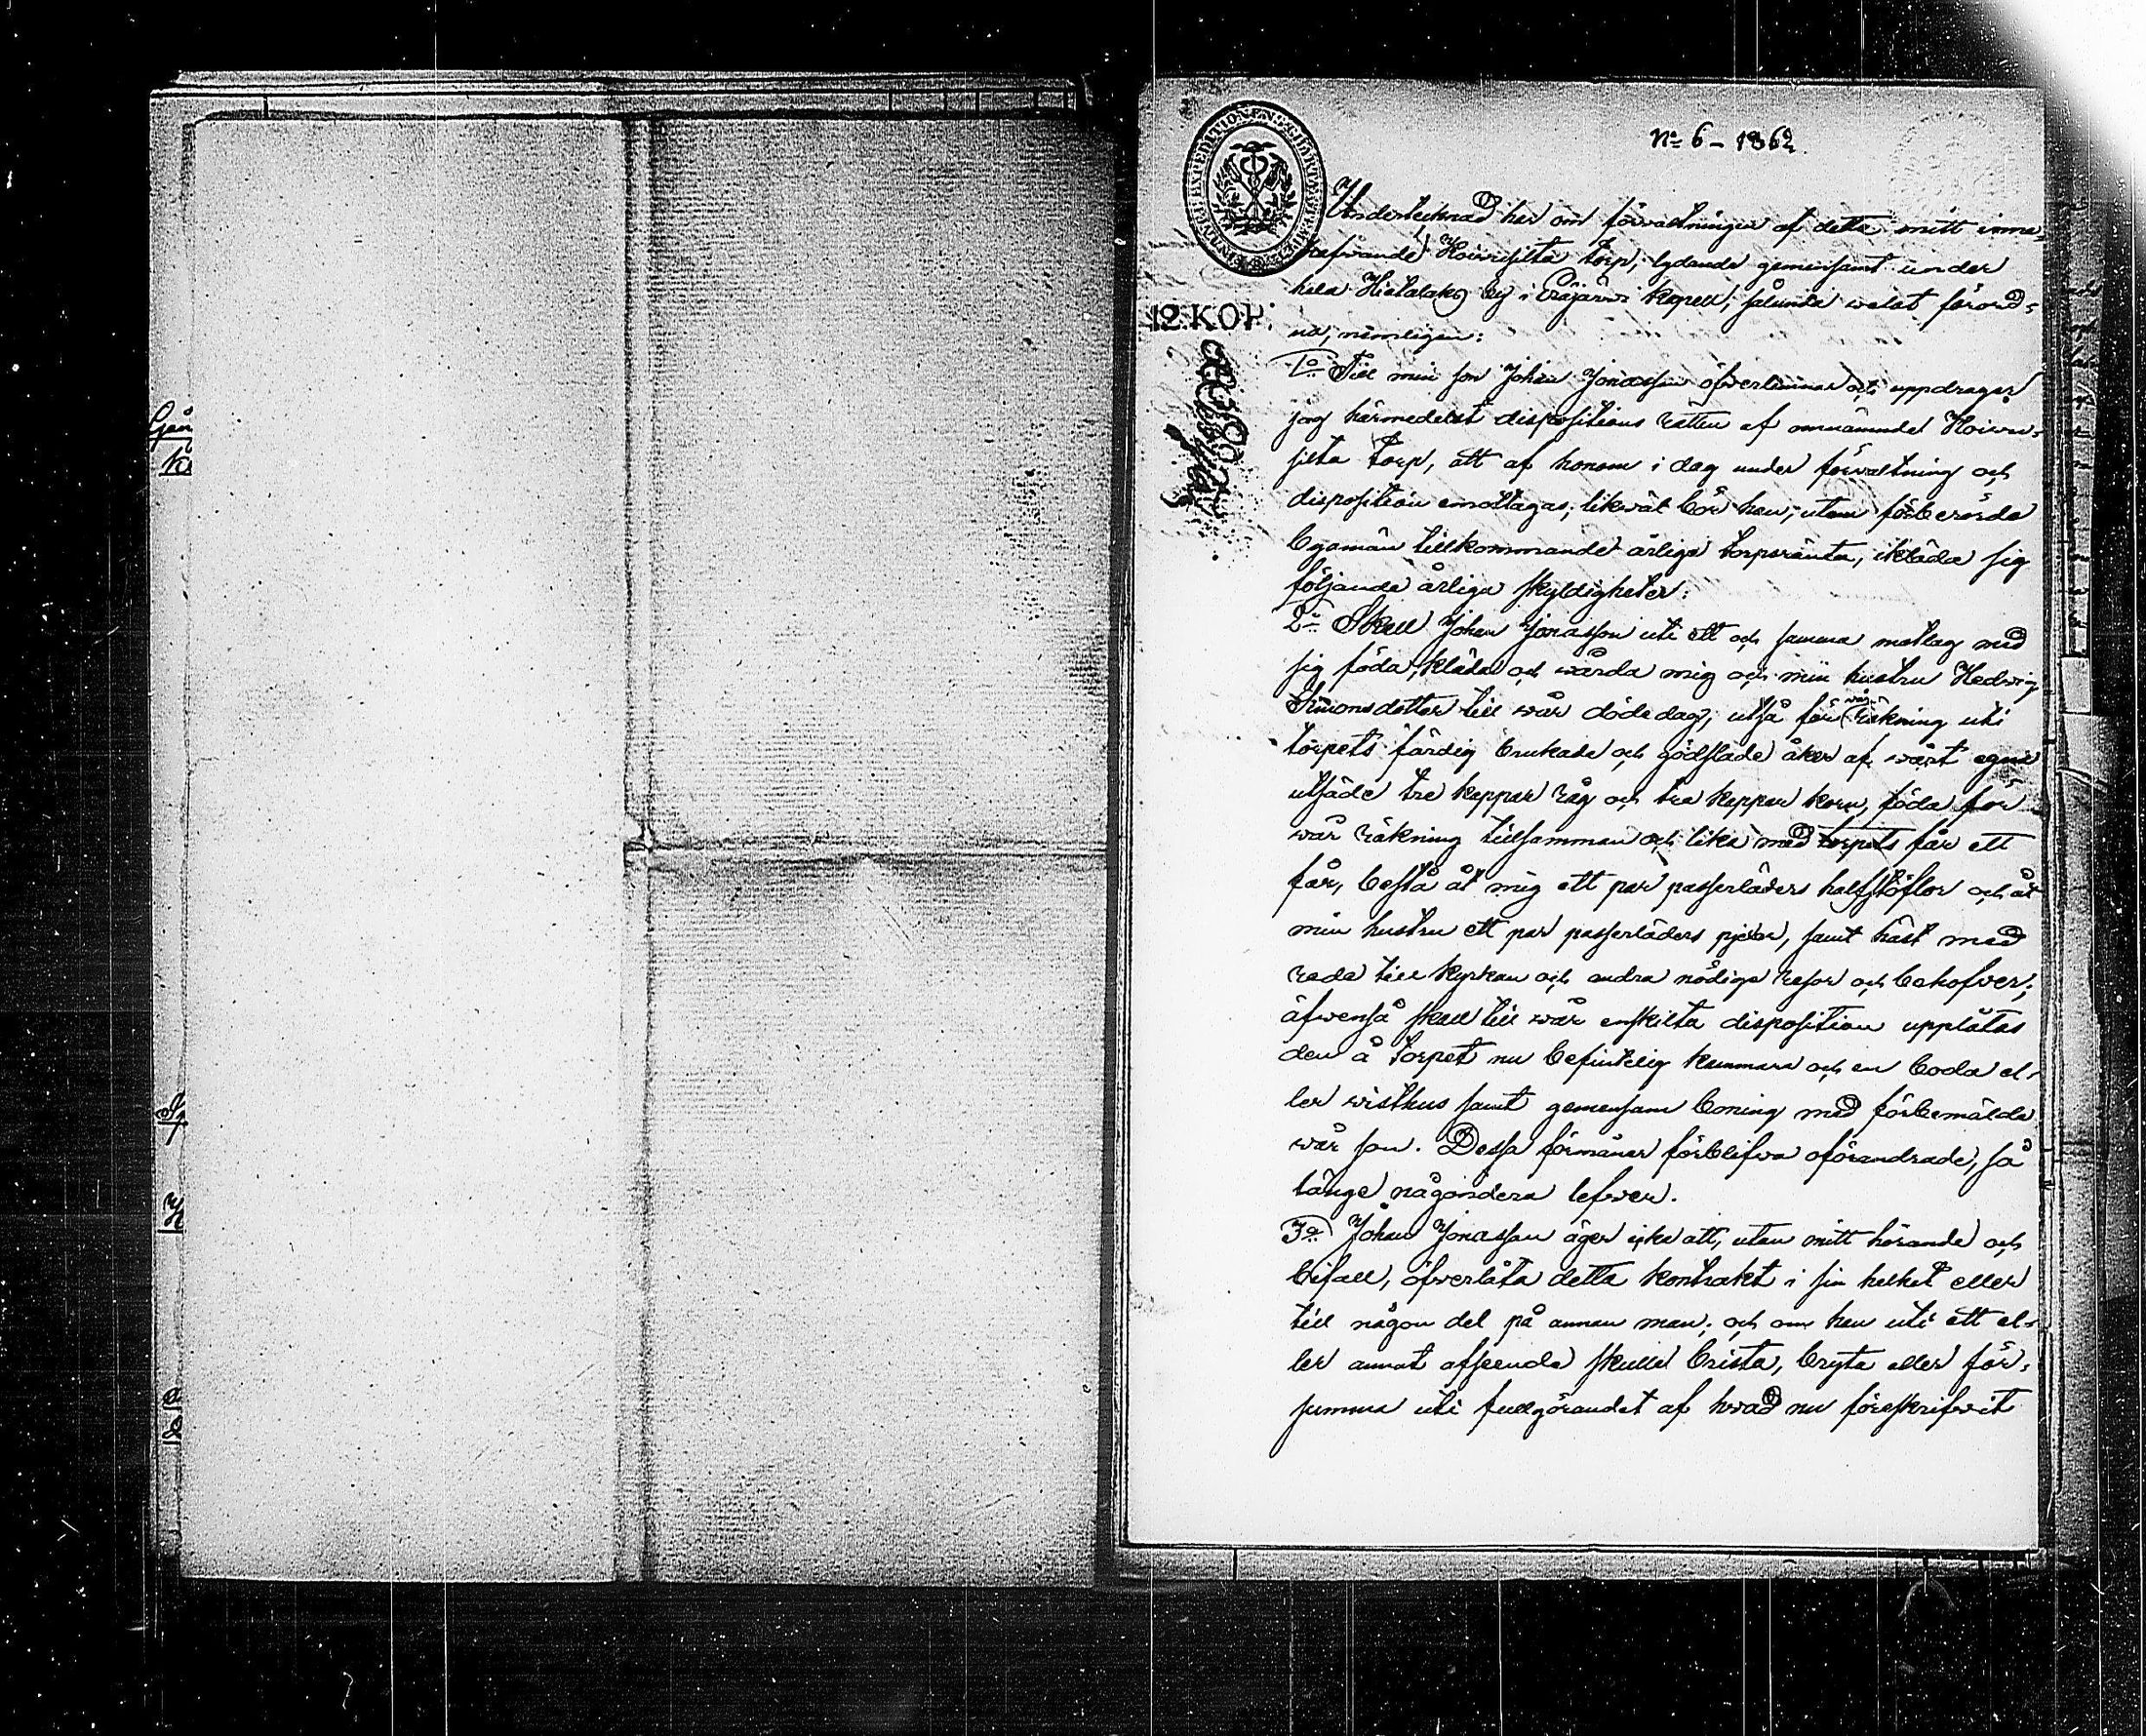 No 6 - 1862.
FINANCIE EXPEDITIONENS CHARTÆ STÄMPEL
12 KOP.
Undertecknad har om förvaltningen af detta mitt inne=
hafvande Koivusilta torp, lydande gemensamt under
hela Hietalaks by i Eräjärvi kapell, sålunda welat förord=
na, nemligen:
1o Till min son Johan Jonasson öfverlemnar och uppdrager
jag härmedelst dispositions rätten af omnämnde Koivu=
silta torp, att af honom i dag under förvaltning och
disposition emottagas, likväl bör han, utom förberörda
byamän tillkommande årliga torpsränta, ikläda sig
följande årliga skyldigheter:
2o Skall Johan Jonasson uti ett och samma matlag med
sig föda, kläda och vårda mig och min hustru Hedvig
Simonsdotter till vår dödedag, utså för vår räkning uti
torpets färdig brukade och gödslade åker af vårt egna
utsäde tre kappar råg och tre kappar korn, föda för
vår räkning tillsamman och lika med torpets får ett
får, bestå åt mig ett par passerläders halfstöflor och åt
min hustru ett par passerläders pjexor, samt häst med
reda till kyrkan och andra nödiga resor och behofver;
äfvenså skall till vår enskilta disposition upplåtas
den å torpet nu befintelig kammare och en boda el=
ler visthus samt gemensam boning med förbemälde
vår son. Dessa förmåner förblifva oförändrade, så
länge någondera lefver.
3o Johan Jonasson äger icke att, utan mitt hörande och
bifall, öfverlåta detta kontrakt i sin helhet eller
till någon del på annan man; och om han uti ett el=
ler annat afseende skulle brista, bryta eller för=
summa uti fullgörandet af hvad nu föreskrifvit